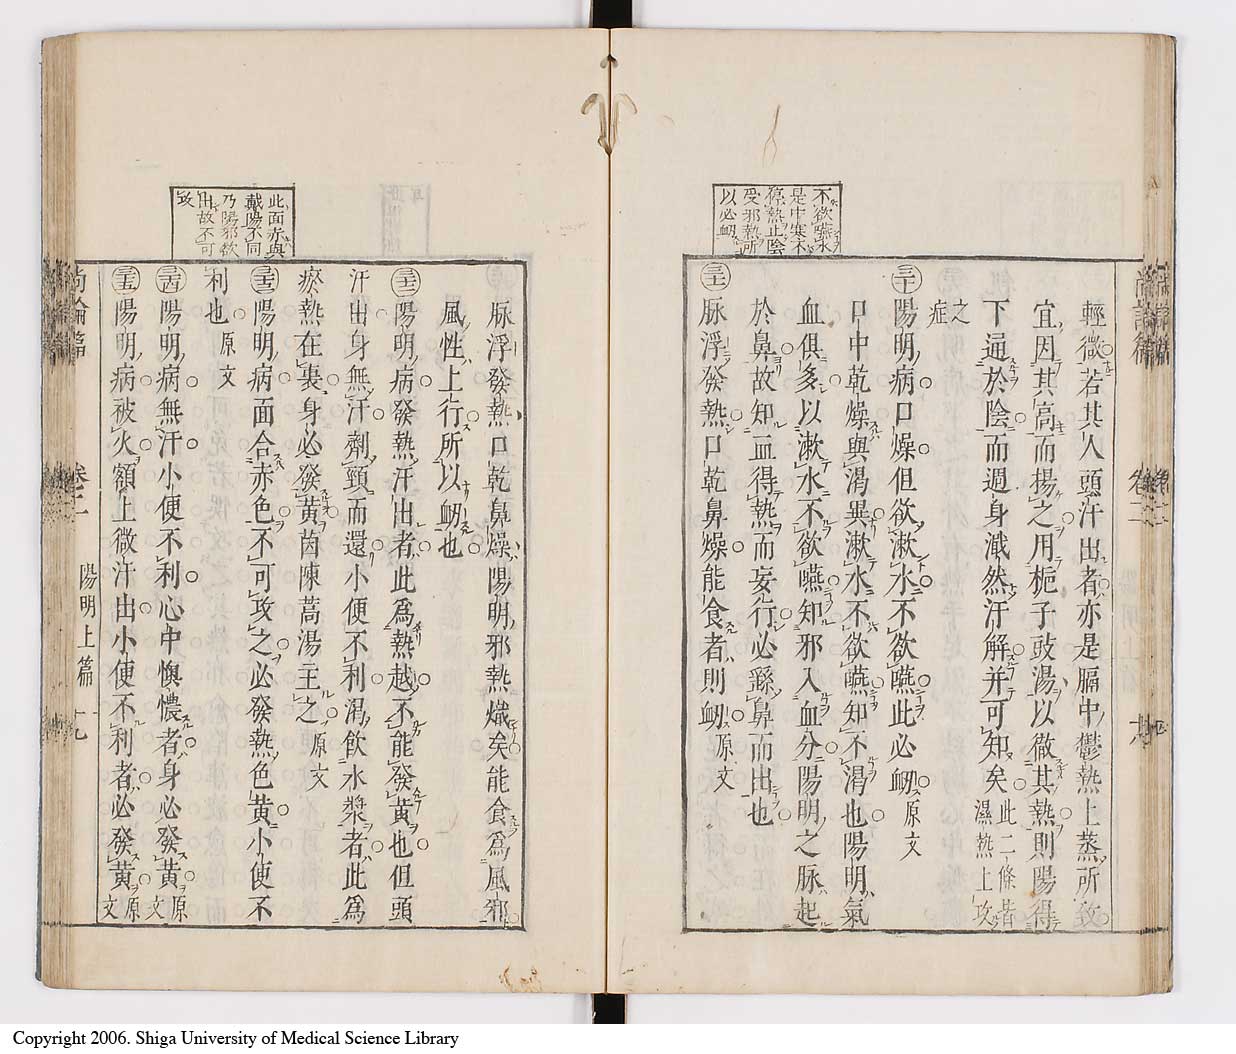 不欲嚥水
是中寒不
停熱止陰
受邪熱所
以必衂
輕微若其人頭汗出者亦是膈中鬱熱上蒸所致
宜因其高而揚之用梔子豉湯以徹其熱則陽得
下通於陰而週身濈然汗解并可知矣此二條皆濕熱上攻
之症
三十陽明病口燥但欲漱水不欲嚥此必衂原文
口中乾燥與渴異漱水不欲嚥知不渴也陽明氣
血俱多以漱水不欲嚥知邪入血分陽明之脉起
於鼻故知血得熱而妄行必繇鼻而出也
三十一脉浮發熱口乾鼻燥能食者則衂原文
此面赤與
戴陽不同
乃陽邪欲
出故不可
攻
脉浮發熱口乾鼻燥陽明邪熱熾矣能食爲風邪
風性上行所以衂也
三十二陽明病發熱汗出者此爲熱越不能發黄也但頭
汗出身無汗劑頸而還小便不利渴飲水漿者此爲
瘀熱在裏身必發黄茵陳蒿湯主之原文
三十三陽明病面合赤色不可攻之必發熱色黄小便不
利也原文
三十四陽明病無汗小便不利心中懊憹者身必發黄原文
三十五陽明病被火額上微汗出小便不利者必發黄原文
尚論篇 卷二 陽明上篇 十九
Copyright 2006. Shiga University of Medical Science Library